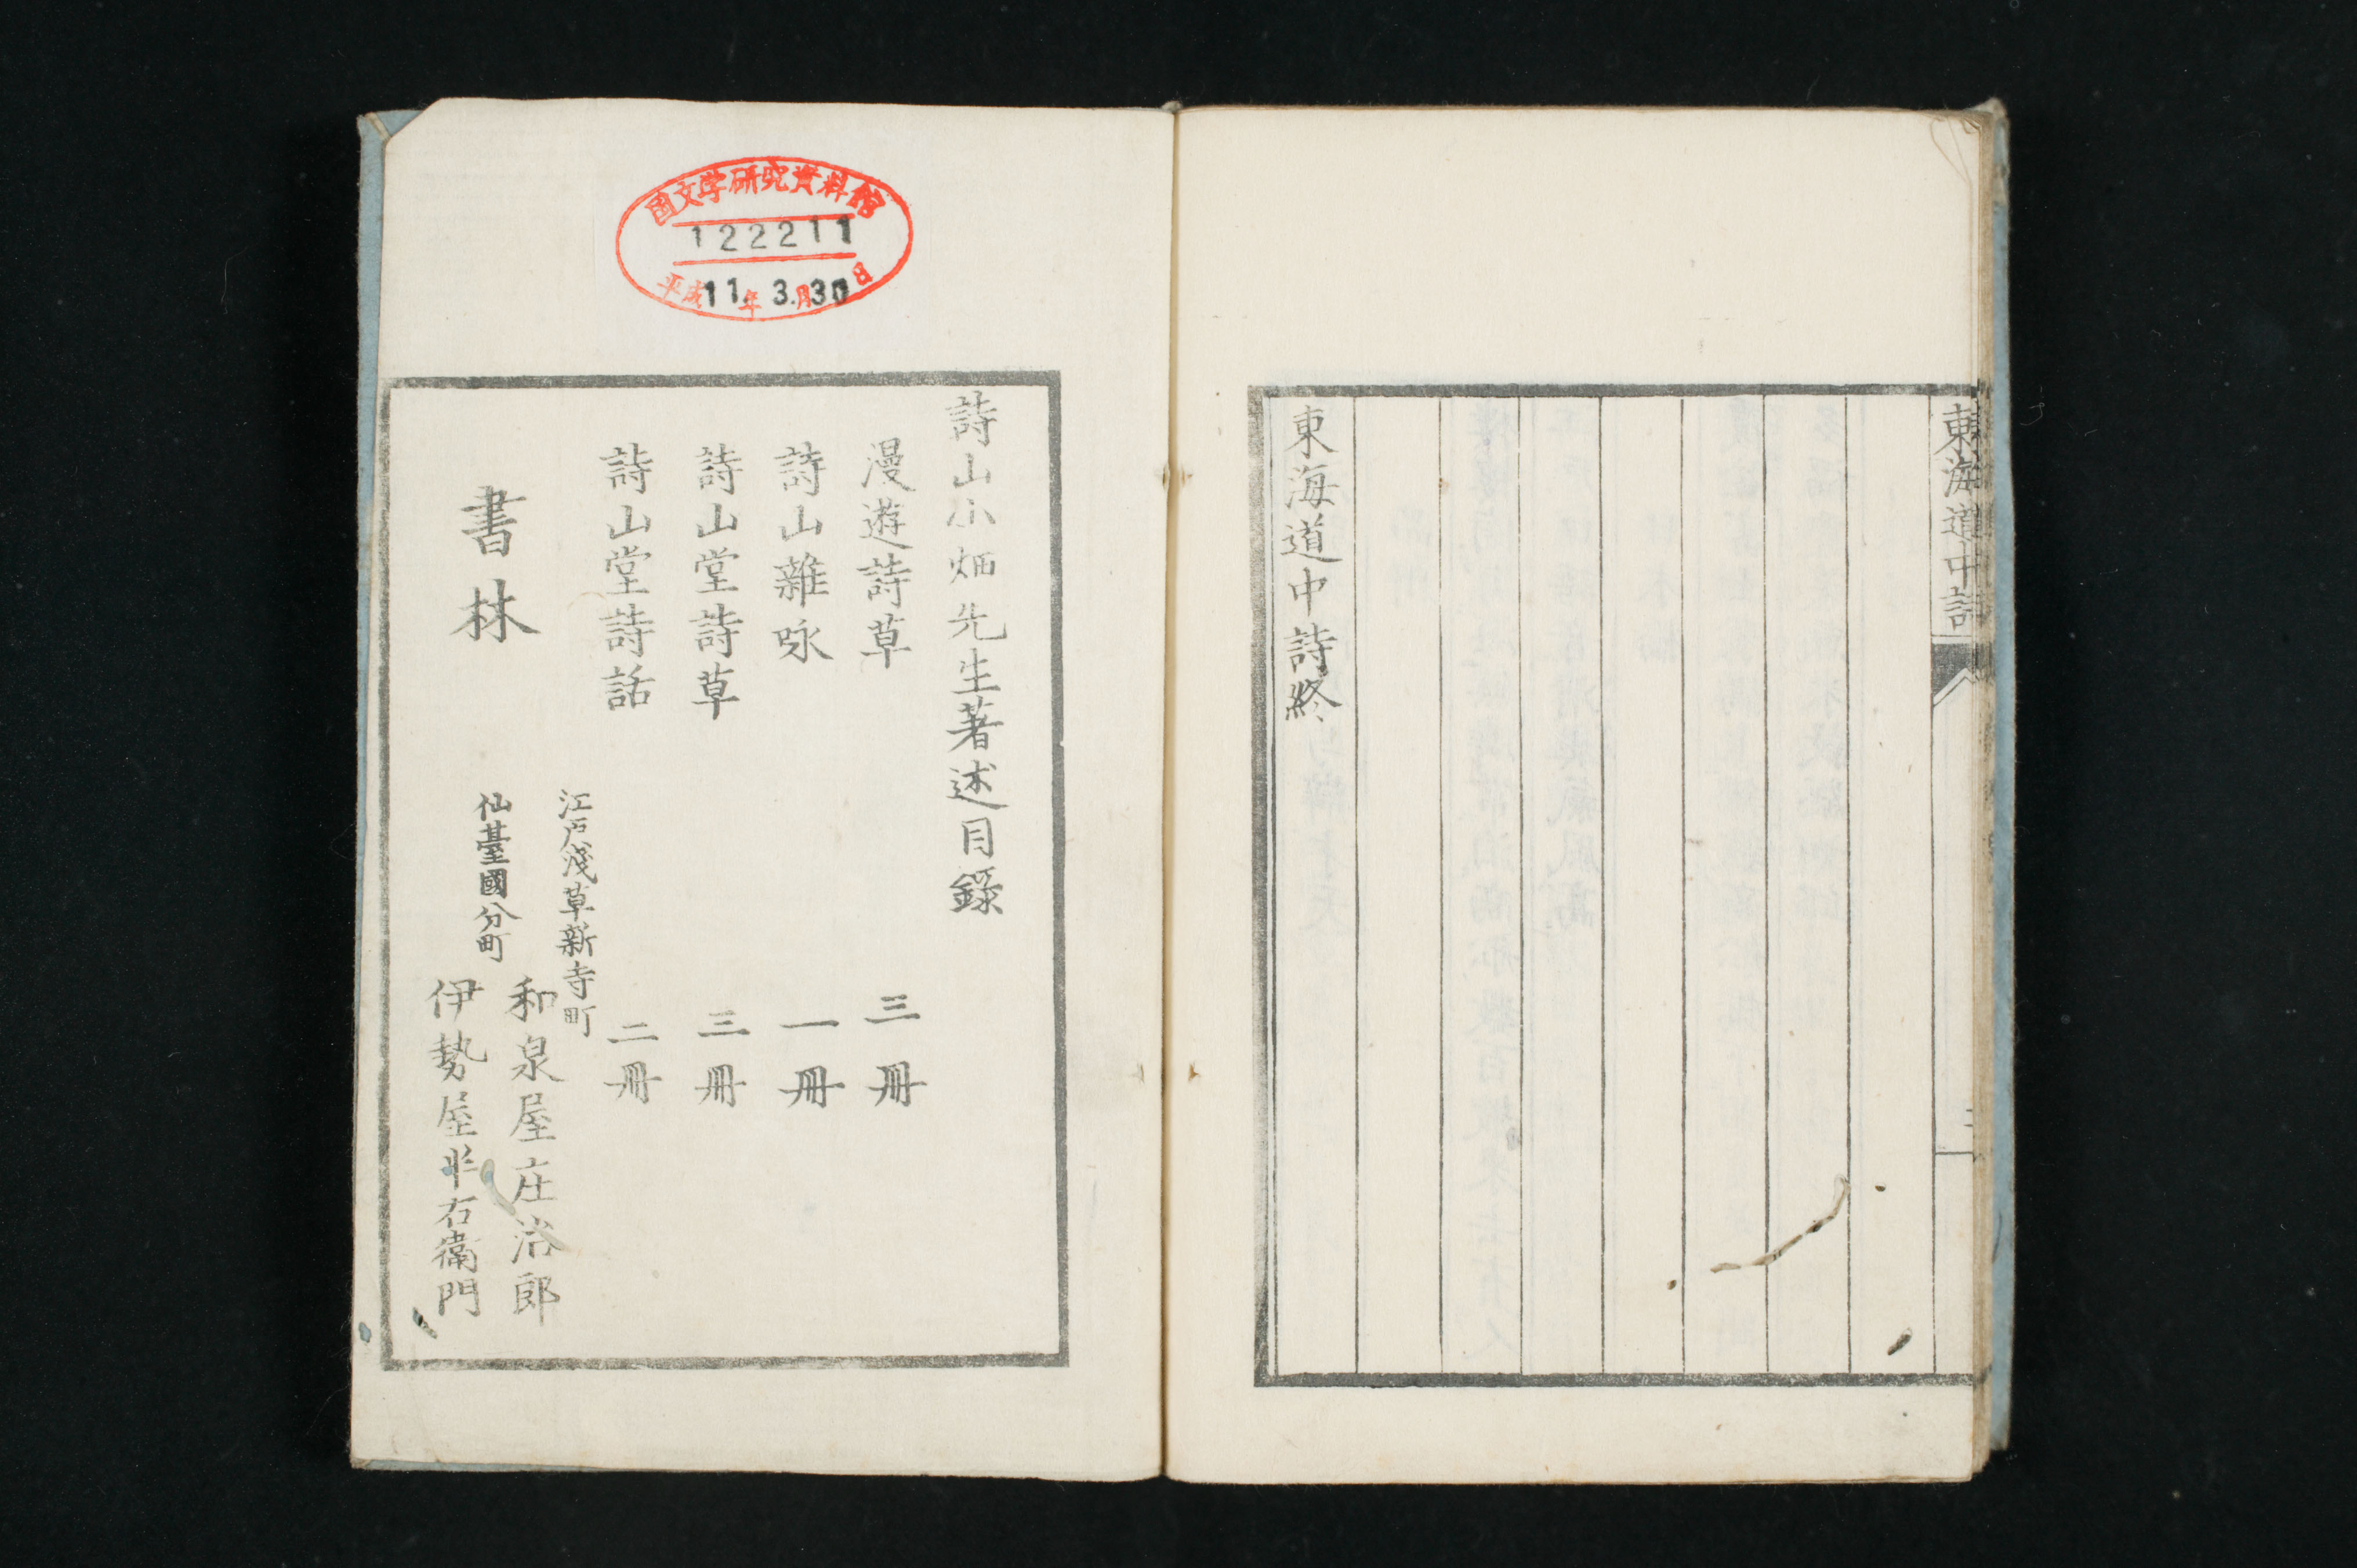 東海道中詩
東海道中詩終
国文学研究資料館
122211
平成11年3.月30日
詩山小畑先生著述目錄
漫遊詩草 三冊
詩山雜咏 一冊
詩山堂詩草 三冊
詩山堂詩話 二冊
書林
江戸淺草新寺町
和泉屋庄治郎
仙臺國分町
伊勢屋半右衞門